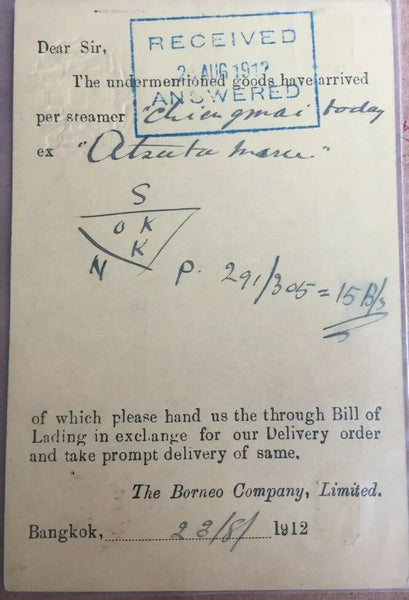 RECEIVED
Dear Sir,
2 AUG 1912
The undermentioned goods have arrived
ANSWERED
per steamer "Chiengmai" today
ex "Atsuta Maru"
S
O K
K
N
P. 291/305 = 15 B/s
of which please hand us the through Bill of
Lading in exchange for our Delivery order
and take prompt delivery of same.
The Borneo Company, Limited.
Bangkok, 23/8/ 1912